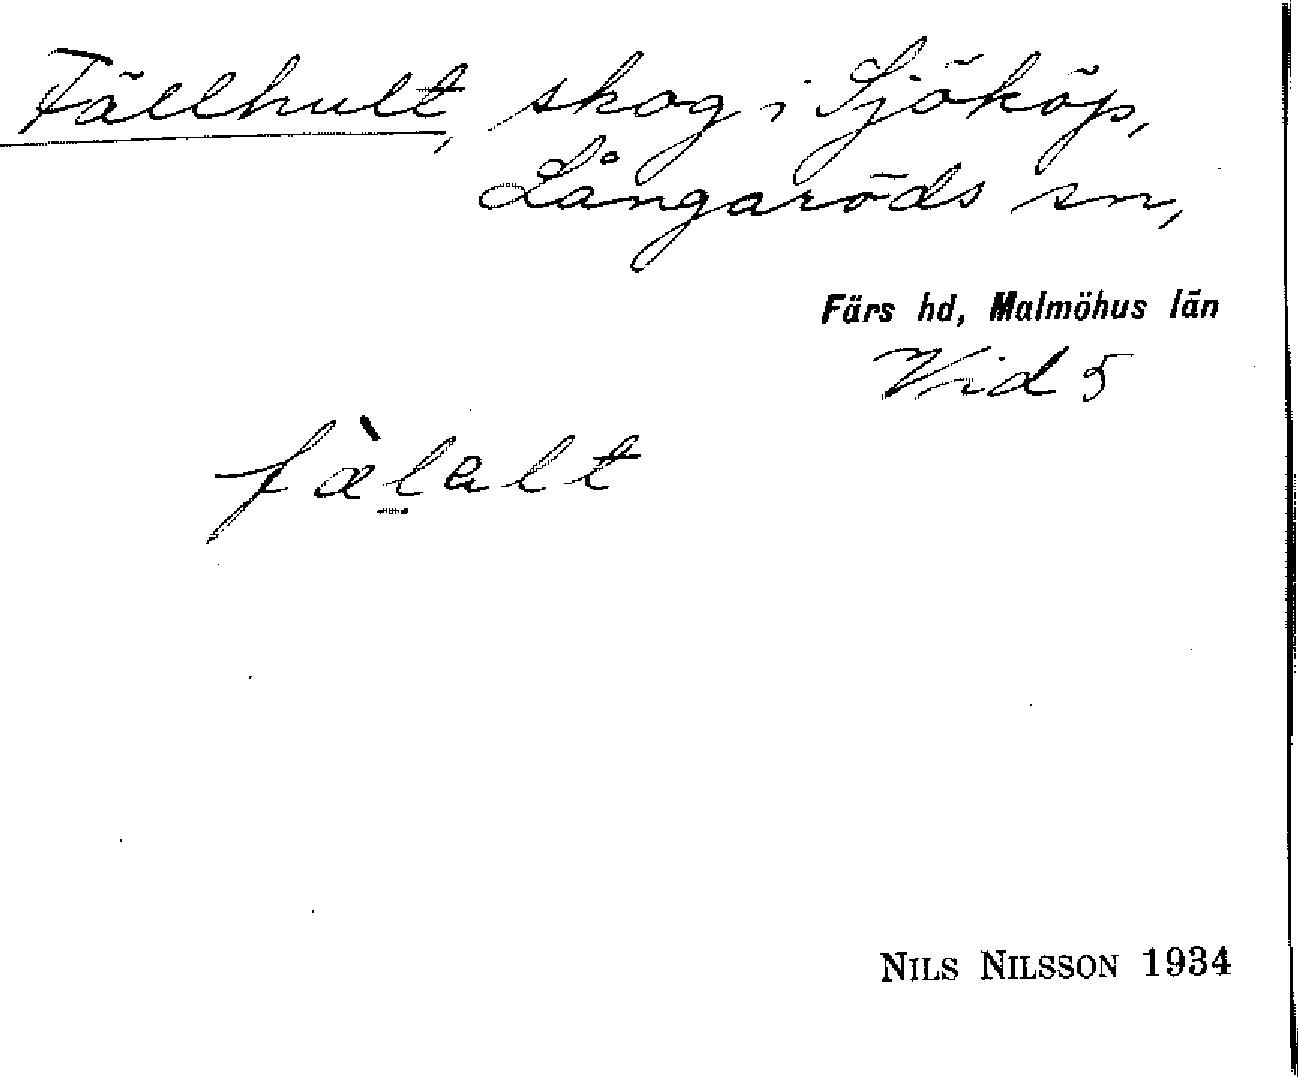 Fällhult, skog i Sjököp,
Långaröds sn,
Färs hd, Malmöhus län
Vid 5
fàlalt
NILS NILSSON 1934